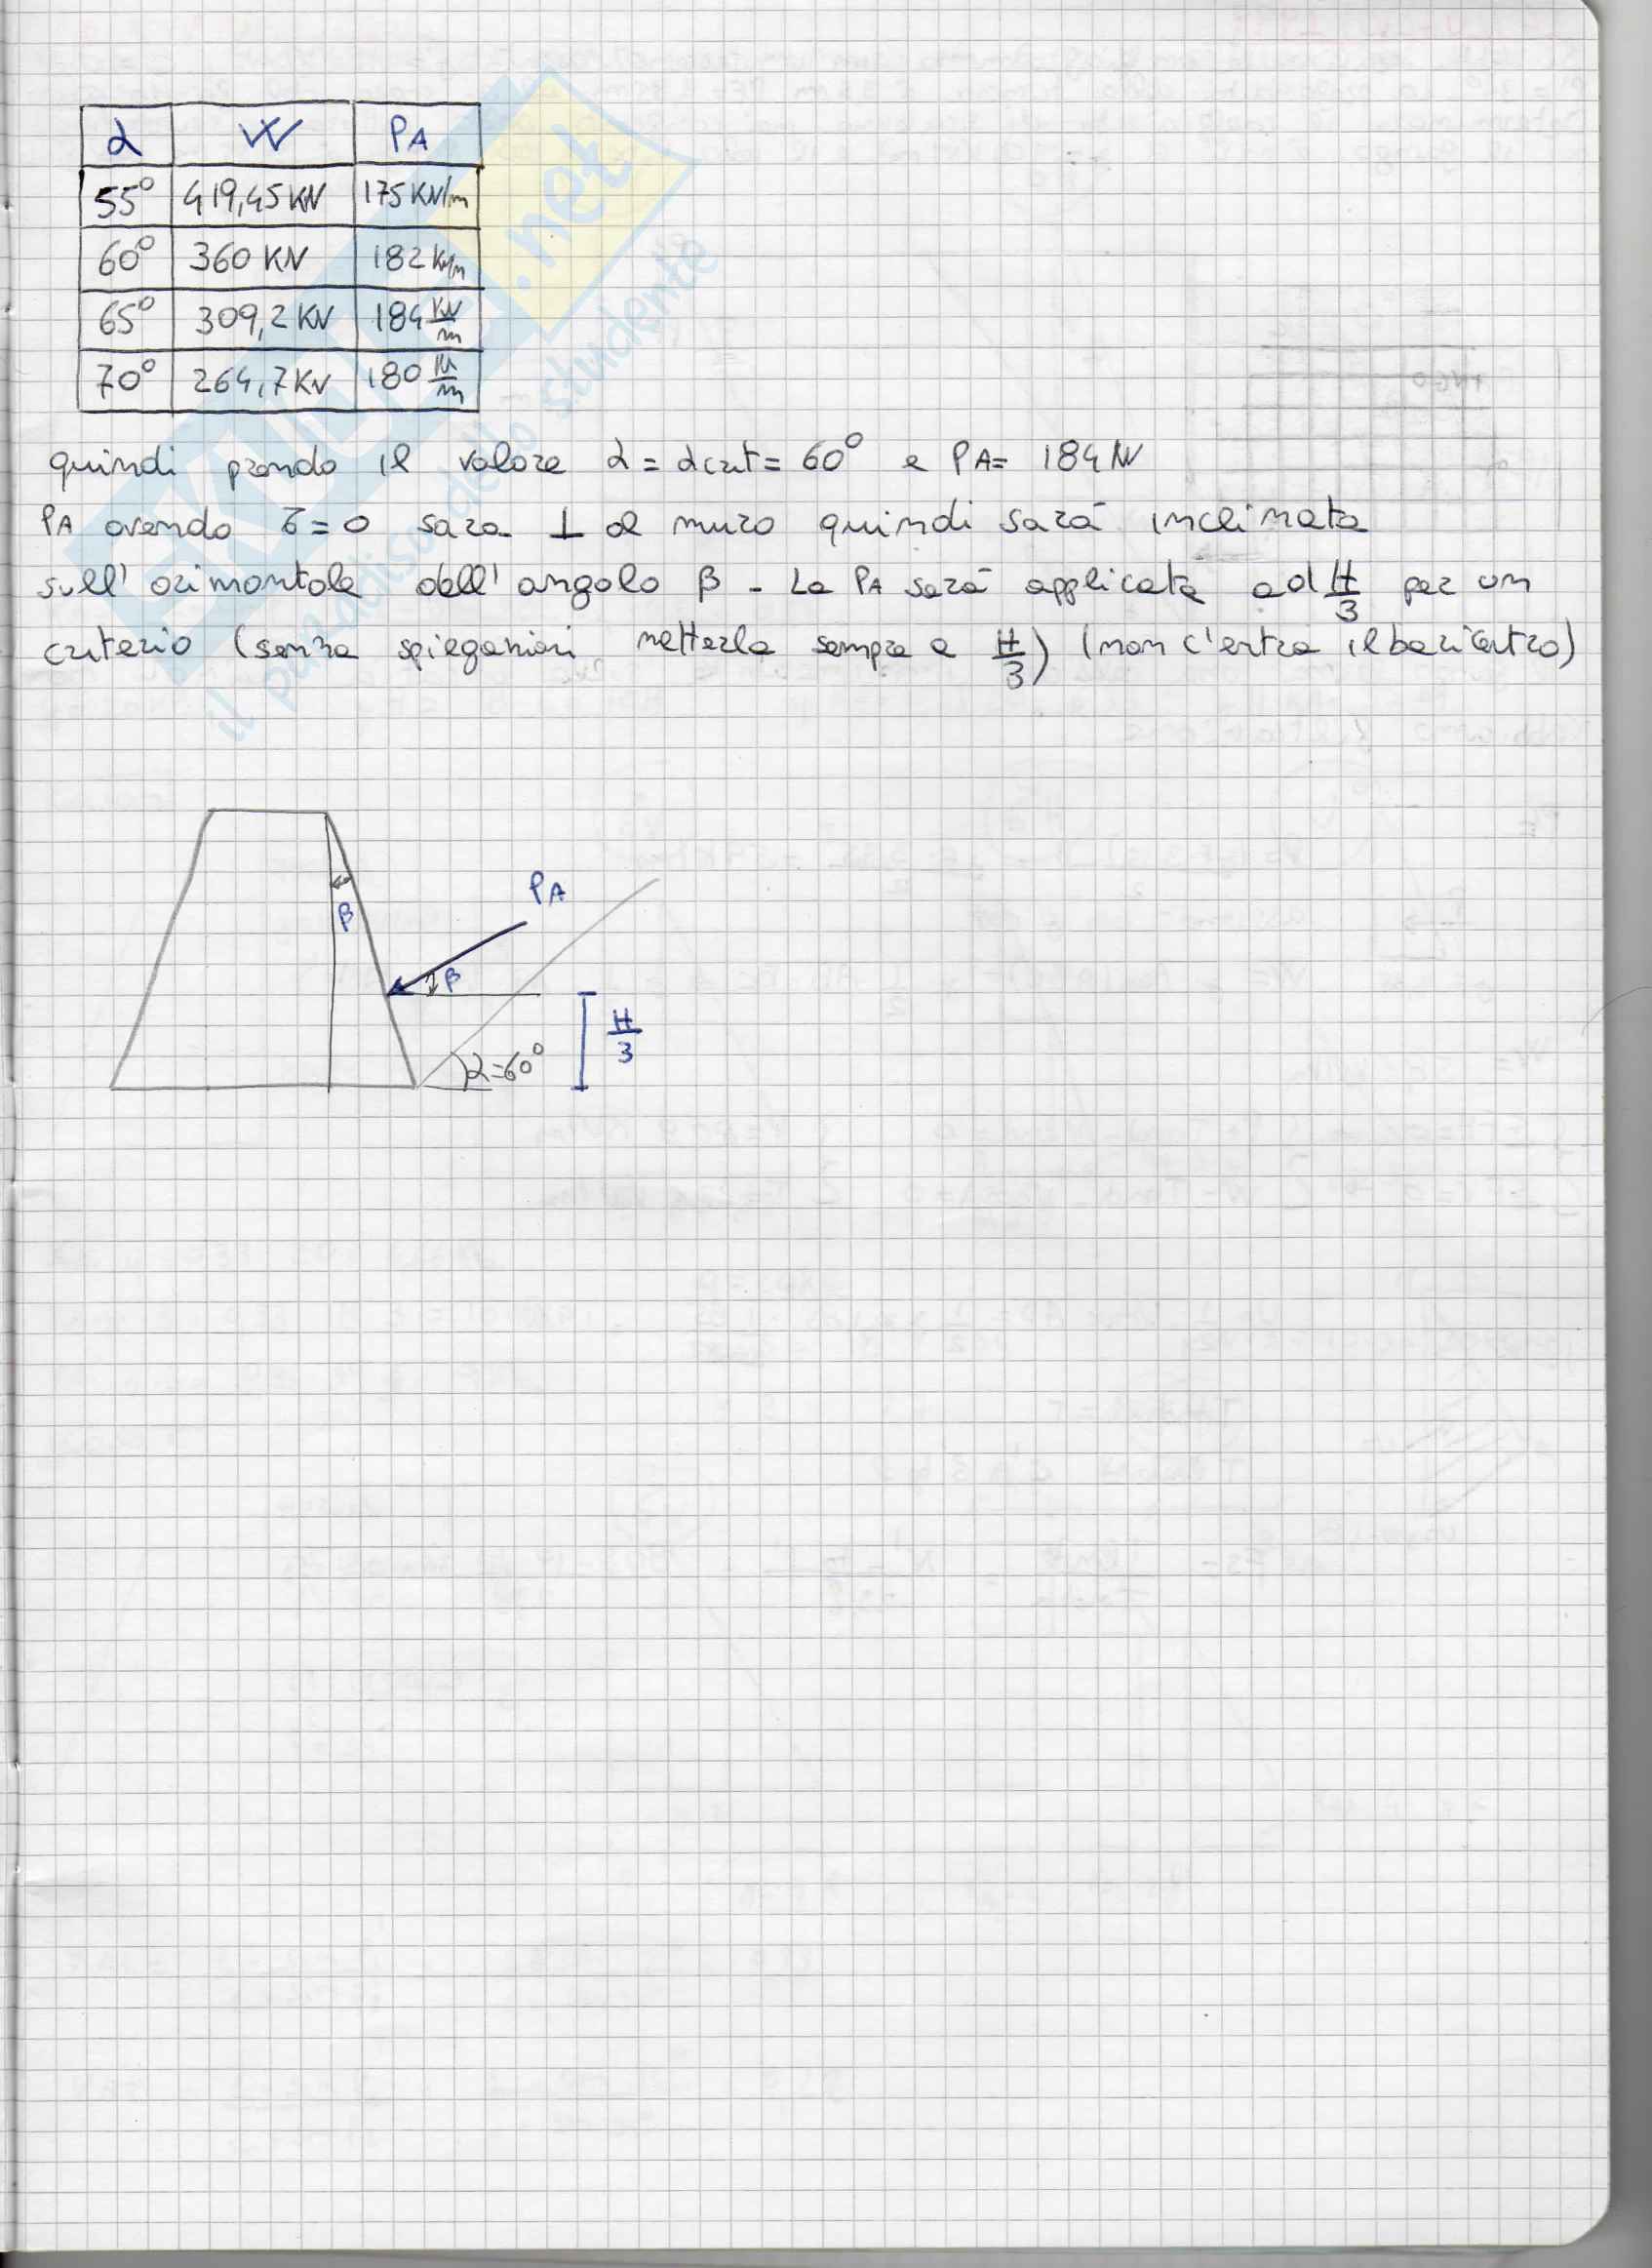 α W PA
55° 419,45 KN 175 KN/m
60° 360 KN 182 KN/m
65° 309,2 KN 184 KN/m
70° 264,7 KN 180 KN/m
quindi prendo il valore α = αcrit = 60° e PA = 184 KN
PA avendo δ = 0 sara ⊥ al muro quindi sarà inclinata
sull' orizzontale dell' angolo β - La PA sarà applicata ad H/3 per un
criterio (senza spiegazioni metterla sempre a H/3) (non c'entra il baricentro)
PA
β
β
H/3
α=60°
.net
il paradiso dello studente